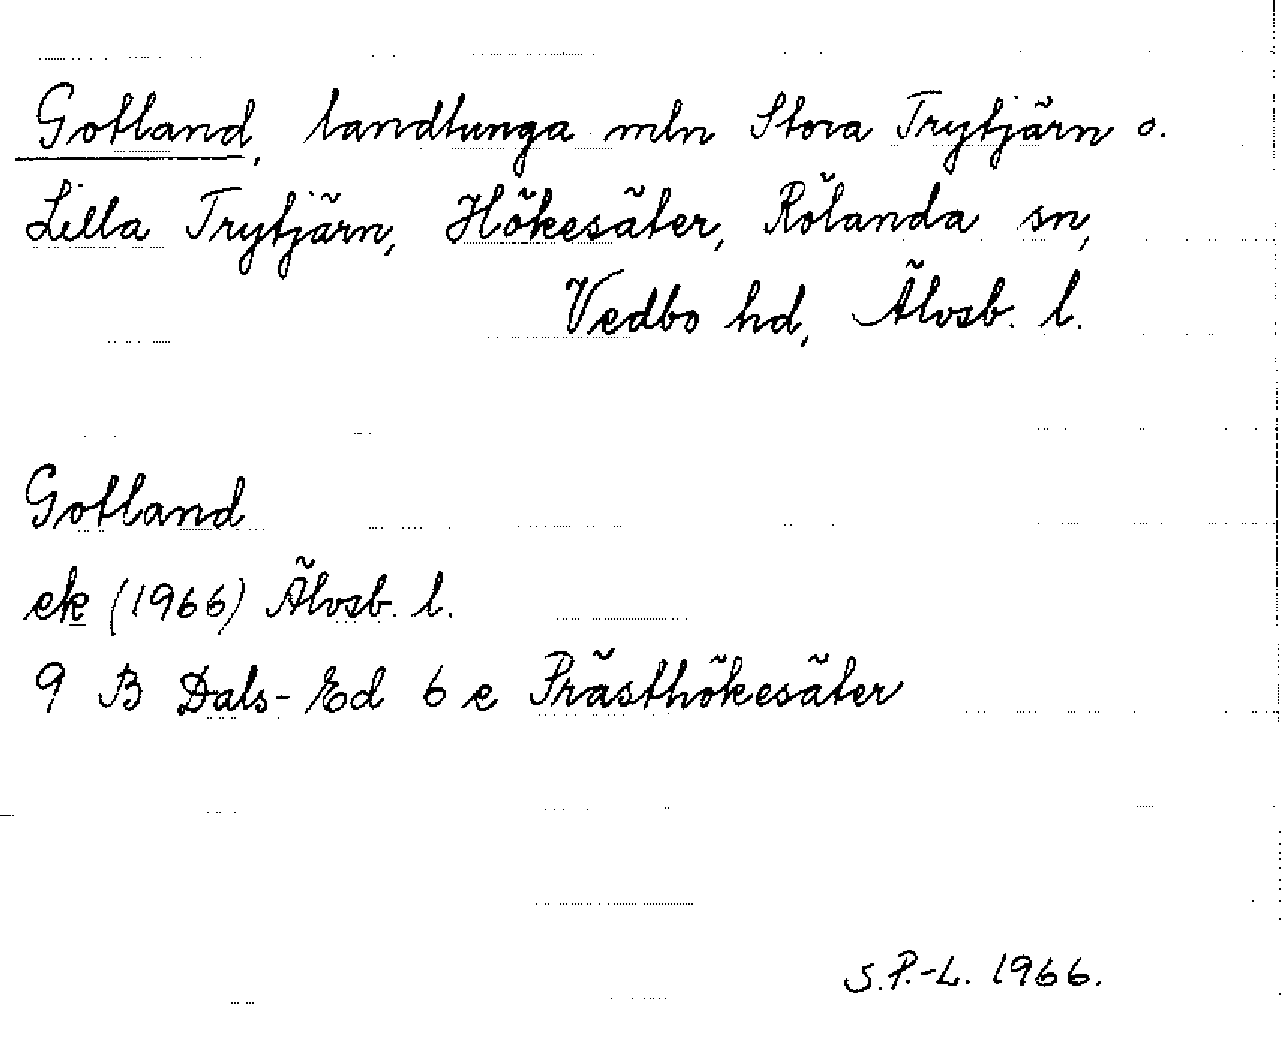 Gotland, landtunga mln Stora Trytjärn o.
Lilla Trytjärn, Hökesäter, Rölanda sn,
Vedbo hd, Älvsb. l.
Gotland
ek (1966) Älvsb. l.
9 B Dals-Ed 6 e Prästhökesäter
S.P.-L. 1966.